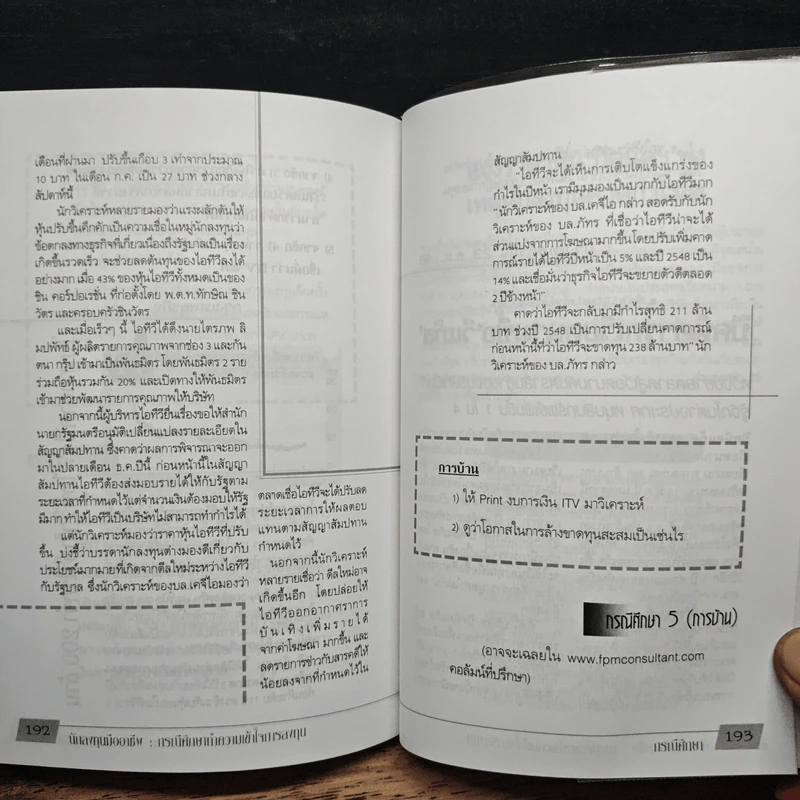 เดือนที่ผ่านมา ปรับขึ้นเกือบ 3 เท่าจากประมาณ
10 บาท ในเดือน ก.ค. เป็น 27 บาท ช่วงกลาง
สัปดาห์นี้
นักวิเคราะห์หลายรายมองว่าแรงผลักดันให้
หุ้นปรับขึ้นคึกคักเป็นความเชื่อในหมู่นักลงทุนว่า
ข้อตกลงทางธุรกิจที่เกี่ยวเนื่องถึงรัฐบาลเป็นเรื่อง
เกิดขึ้นรวดเร็ว จะช่วยลดต้นทุนของไอทีวีลงได้
อย่างมาก เมื่อ 43% ของหุ้นไอทีวีทั้งหมดเป็นของ
ชิน คอร์ปอเรชั่น ที่ก่อตั้งโดย พ.ต.ท.ทักษิณ ชิน
วัตร และครอบครัวชินวัตร
และเมื่อเร็วๆ นี้ ไอทีวีได้ดึงนายไตรภพ ลิ
มปพัทธ์ ผู้ผลิตรายการคุณภาพจากช่อง 3 และกัน
ตนา กรุ๊ป เข้ามาเป็นพันธมิตร โดยพันธมิตร 2 ราย
ร่วมถือหุ้นรวมกัน 20% และเปิดทางให้พันธมิตร
เข้ามาช่วยพัฒนารายการคุณภาพให้บริษัท
นอกจากนี้ผู้บริหารไอทีวียื่นเรื่องขอให้สำนัก
นายกรัฐมนตรีอนุมัติเปลี่ยนแปลงรายละเอียดใน
สัญญาสัมปทาน ซึ่งคาดว่าผลการพิจารณาจะออก
มาในปลายเดือน ธ.ค.ปีนี้ ก่อนหน้านี้ในสัญญา
สัมปทานไอทีวีต้องส่งมอบรายได้ให้กับรัฐตาม
ระยะเวลาที่กำหนดไว้แต่จำนวนเงินต้องมอบให้รัฐ
มีมาก ทำให้ไอทีวีเป็นบริษัทไม่สามารถทำกำไรได้
แต่นักวิเคราะห์มองว่าราคาหุ้นไอทีวีที่ปรับ
ขึ้น บ่งชี้ว่าบรรดานักลงทุนต่างมองดีเกี่ยวกับ
ประโยชน์มากมายที่เกิดจากดีลใหม่ระหว่างไอทีวี
กับรัฐบาล ซึ่งนักวิเคราะห์ของบล.เคจีไอมองว่า
ตลาดเชื่อไอทีวีจะได้ปรับลด
ระยะเวลาการให้ผลตอบ
แทนตามสัญญาสัมปทาน
กำหนดไว้
นอกจากนี้นักวิเคราะห์
หลายรายเชื่อว่า ดีลใหม่อาจ
เกิดขึ้นอีก โดยปล่อยให้
ไอทีวีออกอากาศรายการ
บันเทิงเพิ่มรายได้
จากค่าโฆษณา มากขึ้น และ
ลดรายการข่าวกับสารคดีให้
น้อยลงจากที่กำหนดไว้ใน
192
นักลงทุนมืออาชีพ : กรณีศึกษาทำความเข้าใจการลงทุน
สัญญาสัมปทาน
"ไอทีวีจะได้เห็นการเติบโตแข็งแกร่งของ
กำไรในปีหน้า เรามีมุมมองเป็นบวกกับไอทีวีมาก
" นักวิเคราะห์ของ บล.เคจีไอ กล่าว สอดรับกับนัก
วิเคราะห์ของ บล.ภัทร ที่เชื่อว่าไอทีวีน่าจะได้
ส่วนแบ่งจากการโฆษณามากขึ้นโดยปรับเพิ่มคาด
การณ์รายได้ไอทีวีปีหน้าเป็น 5% และปี 2548 เป็น
14% และเชื่อมั่นว่าธุรกิจไอทีวีจะขยายตัวดีตลอด
2 ปีข้างหน้า"
คาดว่าไอทีวีจะกลับมามีกำไรสุทธิ 211 ล้าน
บาท ช่วงปี 2548 เป็นการปรับเปลี่ยนคาดการณ์
ก่อนหน้านี้ที่ว่าไอทีวีจะขาดทุน 238 ล้านบาท" นัก
วิเคราะห์ของ บล.ภัทร กล่าว
การบ้าน
1) ให้ Print งบการเงิน ITV มาวิเคราะห์
2) ดูว่าโอกาสในการล้างขาดทุนสะสมเป็นเช่นไร
กรณีศึกษา 5 (การบ้าน)
(อาจจะเฉลยใน www.fpmconsultant.com
คอลัมน์ที่ปรึกษา)
กรณีศึกษา
193